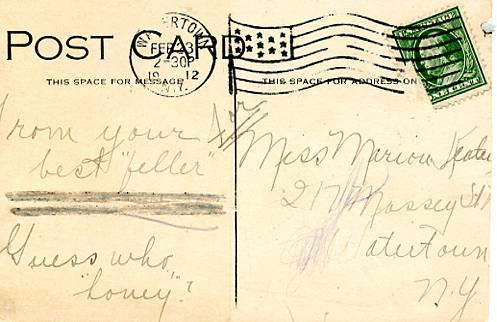 POST CARD
WATERTOWN
FEB 23
2-30P
19 12
N.Y.
THIS SPACE FOR MESSAGE
THIS SPACE FOR ADDRESS ON
From your
best "feller"
Guess who,
"honey"?
Miss Marion
217 Massey St
Watertown
N.Y.